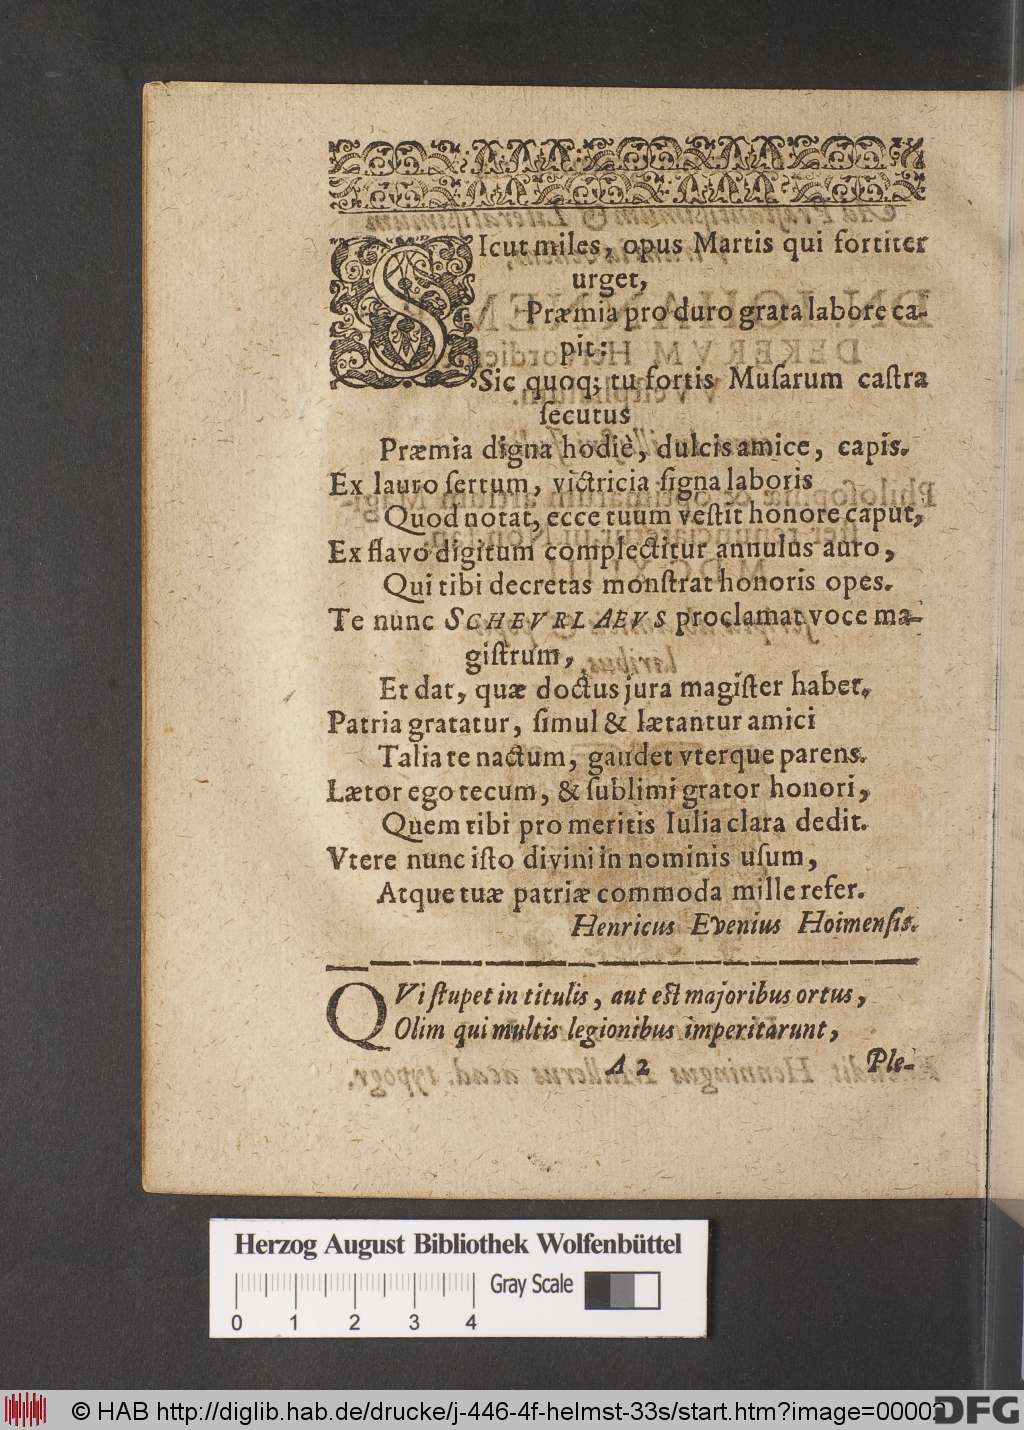 SIcut miles, opus Martis qui fortiter
urget,
Præmia pro duro grata labore ca-
pit:
Sic quoq; tu fortis Muſarum caſtra
ſecutus
Præmia digna hodiè, dulcis amice, capis.
Ex lauro ſertum, victricia ſigna laboris
Quod notat, ecce tuum veſtit honore caput,
Ex flavo digitum complectitur annulus auro,
Qui tibi decretas monſtrat honoris opes.
Te nunc SCHEVRLAEVS proclamat voce ma-
giſtrum,
Et dat, quæ doctus jura magiſter habet,
Patria gratatur, ſimul & lætantur amici
Talia te nactum, gaudet vterque parens.
Lætor ego tecum, & ſublimi grator honori,
Quem tibi pro meritis Iulia clara dedit.
Vtere nunc iſto divini in nominis uſum,
Atque tuæ patriæ commoda mille refer.
Henricus Evenius Hoimenſis.
QVi ſtupet in titulis, aut eſt majoribus ortus,
Olim qui multis legionibus imperitarunt,
A 2
Ple-
Herzog August Bibliothek Wolfenbüttel
Gray Scale
0 1 2 3 4
© HAB http://diglib.hab.de/drucke/j-446-4f-helmst-33s/start.htm?image=00002
DFG